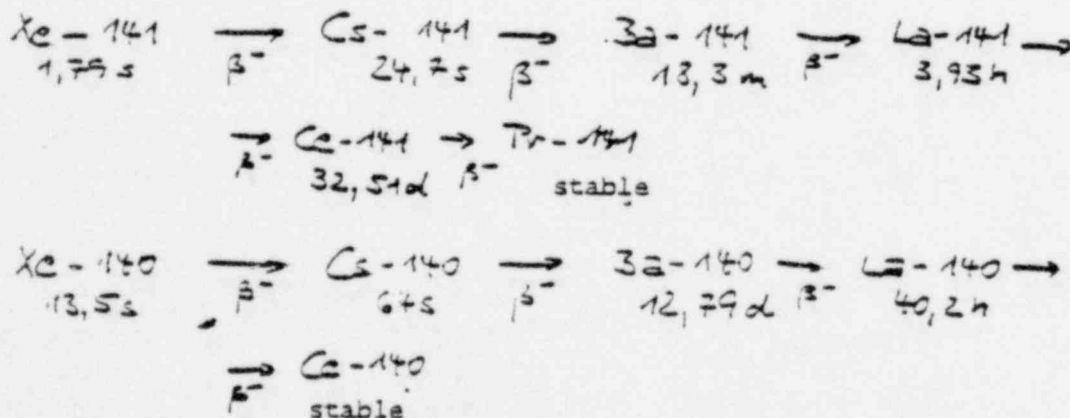 Xe-141 → Cs-141 → Ba-141 → La-141 →
1,79 s β⁻ 24,7 s β⁻ 18,3 m β⁻ 3,93 h
→ Ce-141 → Pr-141
β⁻ 32,51 d β⁻ stable
Xe-140 → Cs-140 → Ba-140 → La-140 →
13,5 s β⁻ 64 s β⁻ 12,79 d β⁻ 40,2 h
→ Ce-140
β⁻ stable